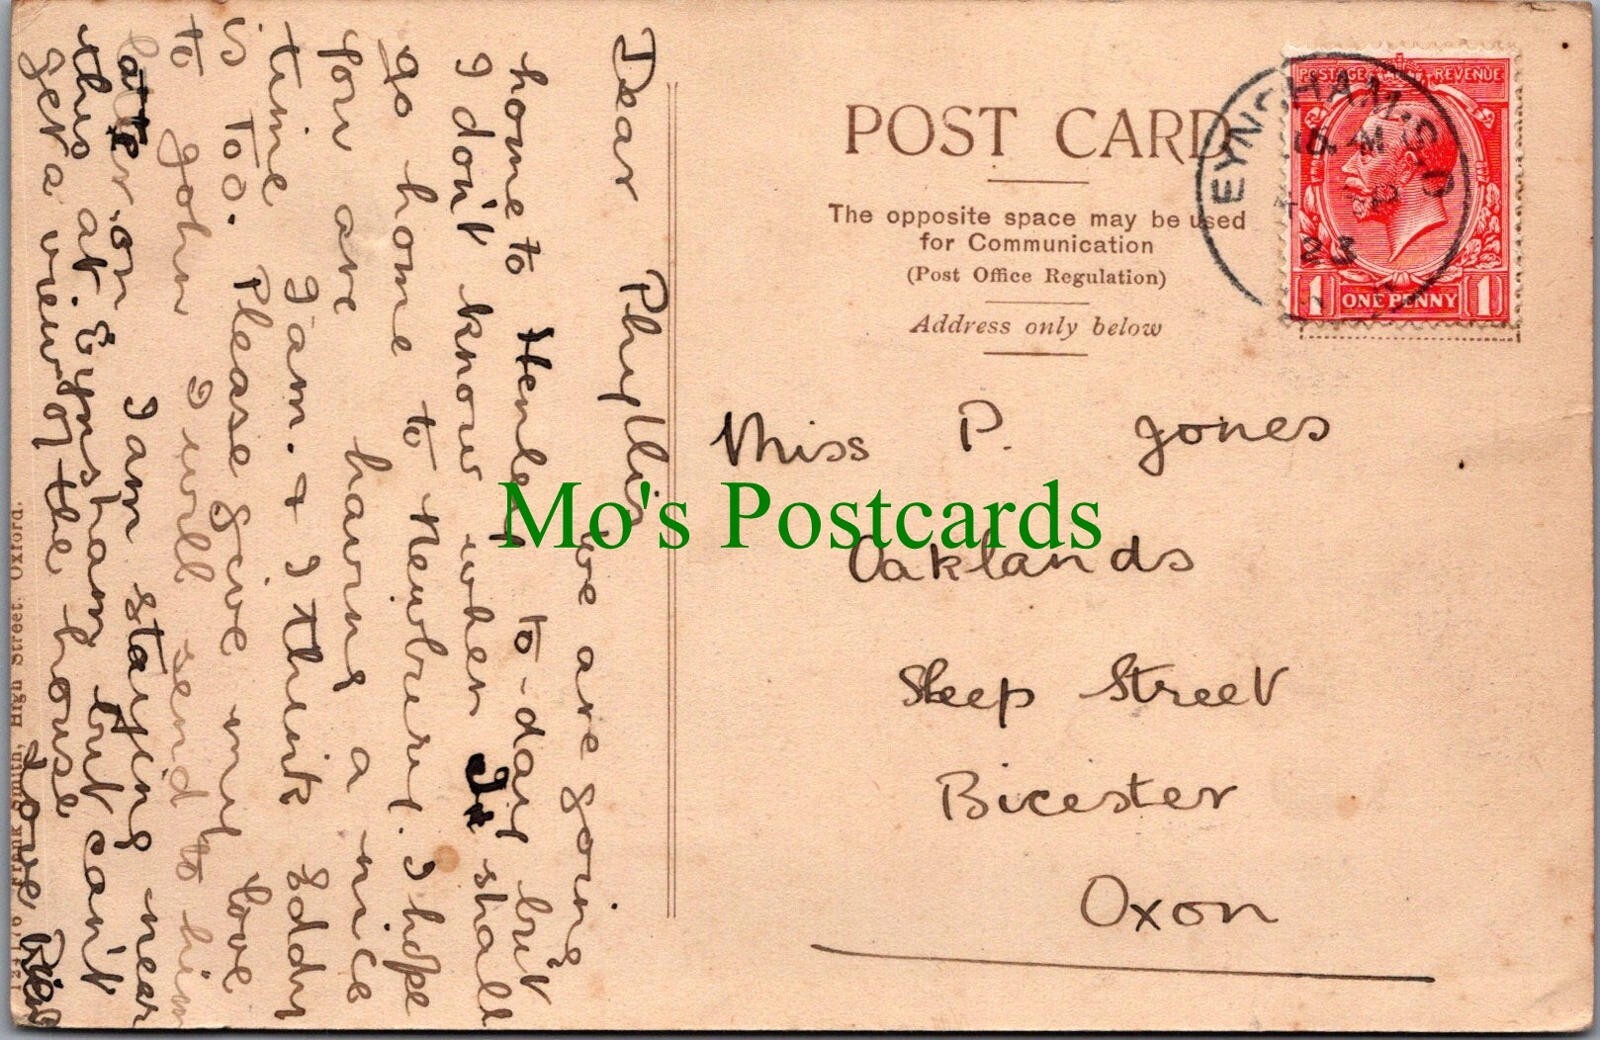 Dear Phyllis
we are going
home to Henley to-day but
I don't know when I shall
go home to Newbury. I hope
you are having a nice
time I am. & I think Eddy
is too. Please give my love
to John I will send to him
later on I am staying near
this at. Eynsham but can't
get a view of the house
Love
Frank Smith, High Street, Oxford.
POST CARD
The opposite space may be used
for Communication
(Post Office Regulation)
Address only below
POSTAGE REVENUE
1 ONE PENNY 1
EYNSHAM. S.O
23
Miss P. Jones
Oaklands
Sheep Street
Bicester
Oxon
Mo's Postcards